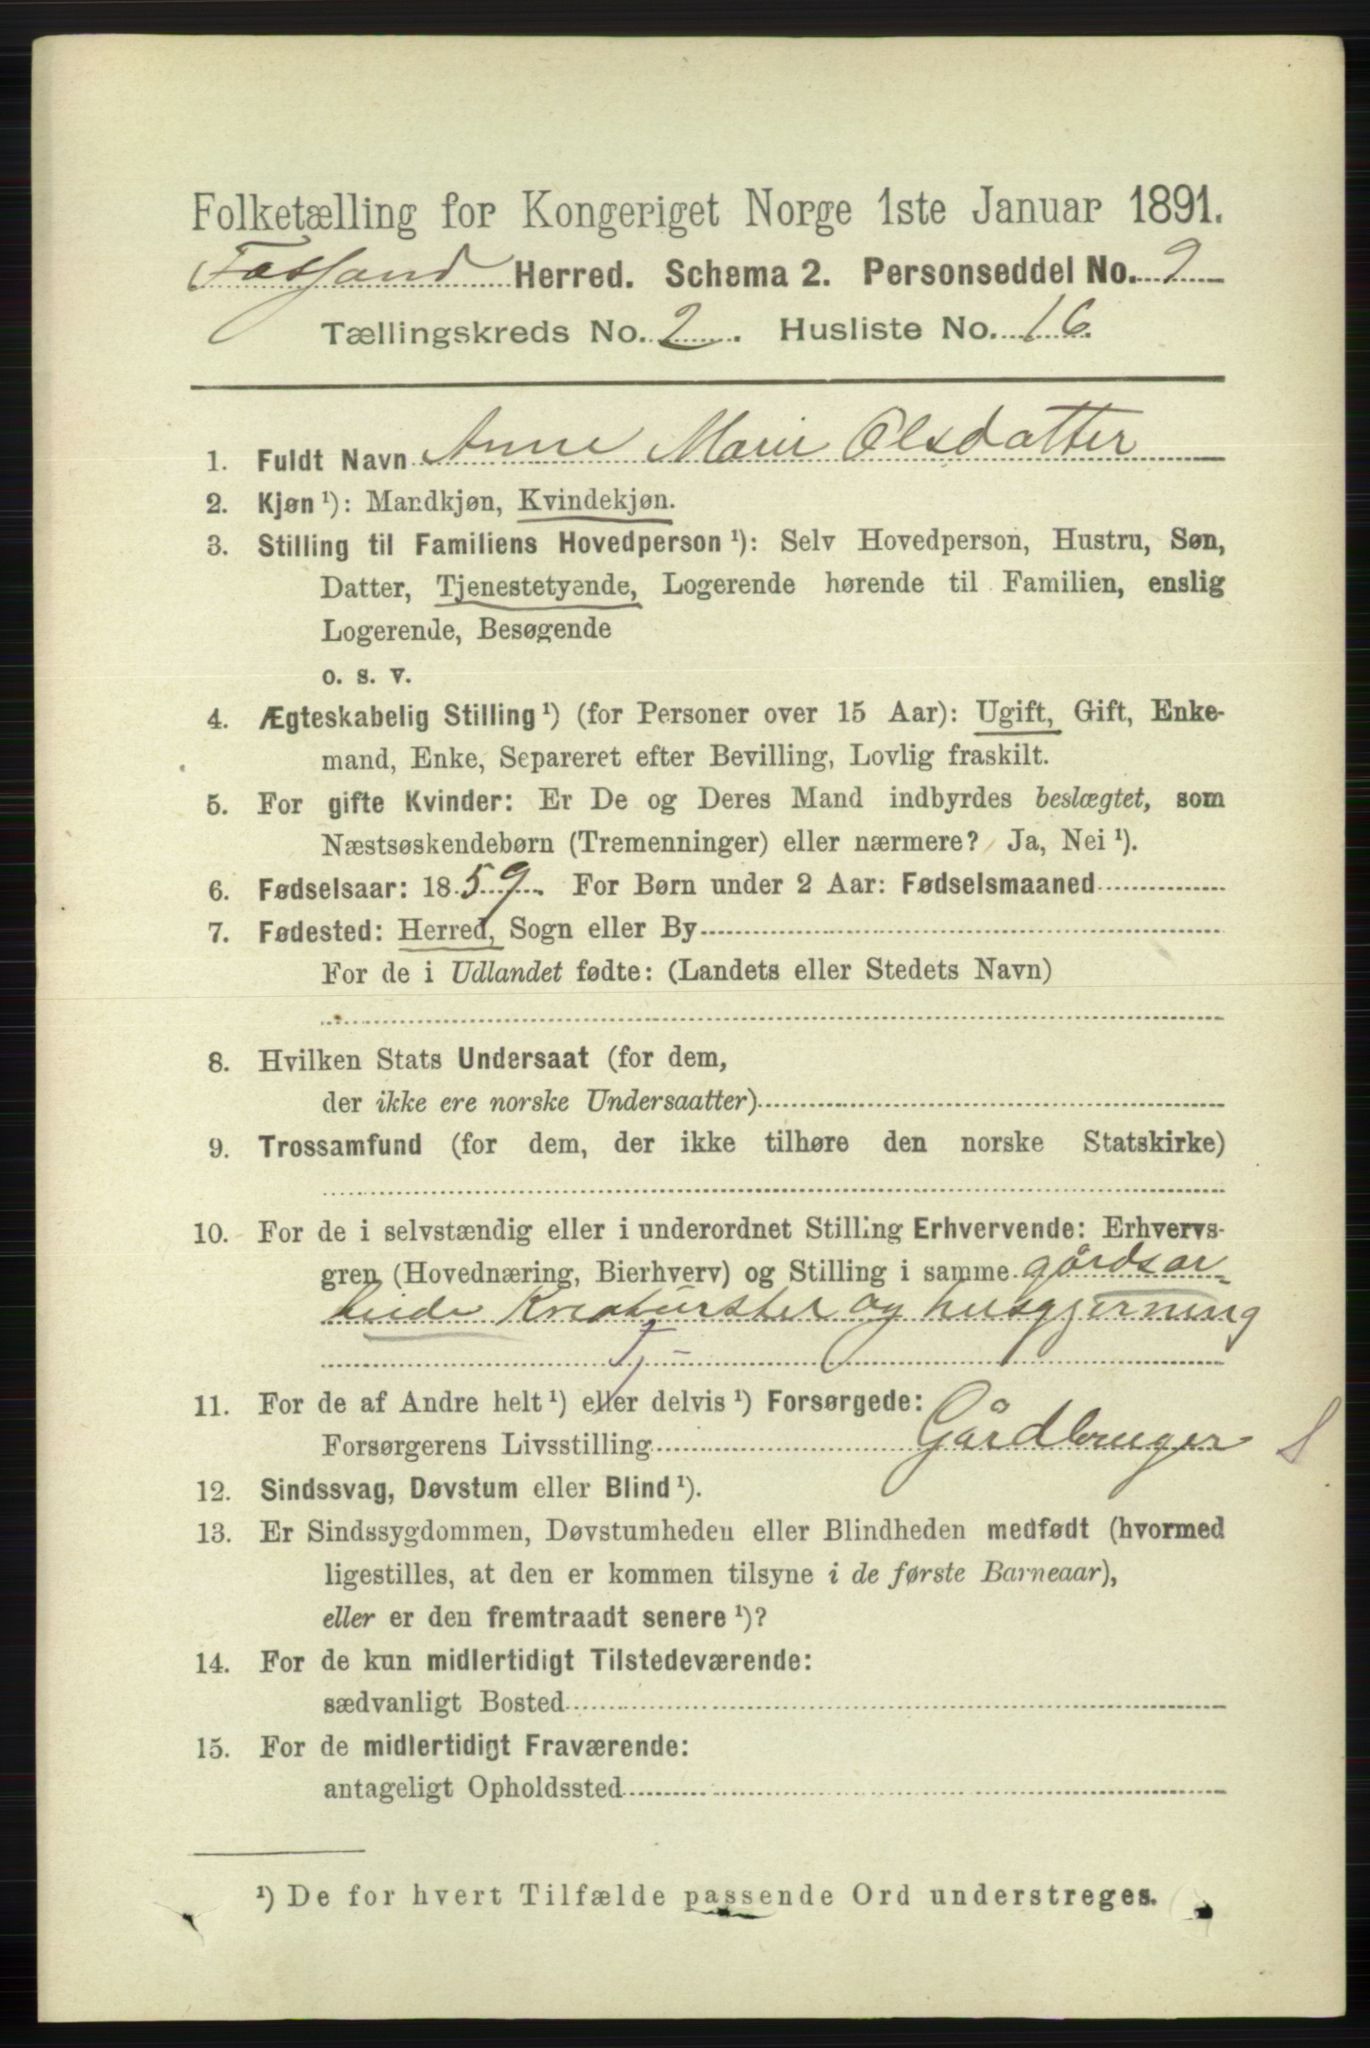 Folketælling for Kongeriget Norge 1ste Januar 1891.
Fossand Herred. Schema 2. Personseddel No. 2
Tællingskreds No. 2. Husliste No. 16.
1. Fuldt Navn Anne Marie Olsdatter
2. Kjøn ¹): Mandkjøn, Kvindekjøn.
3. Stilling til Familiens Hovedperson ¹): Selv Hovedperson, Hustru, Søn,
Datter, Tjenestetyende, Logerende hørende til Familien, enslig
Logerende, Besøgende
o. s. v.
4. Ægteskabelig Stilling ¹) (for Personer over 15 Aar): Ugift, Gift, Enke-
mand, Enke, Separeret efter Bevilling, Lovlig fraskilt.
5. For gifte Kvinder: Er De og Deres Mand indbyrdes beslægtet, som
Næstsøskendebørn (Tremenninger) eller nærmere? Ja, Nei ¹).
6. Fødselsaar: 1859. For Børn under 2 Aar: Fødselsmaaned
7. Fødested: Herred, Sogn eller By
For de i Udlandet fødte: (Landets eller Stedets Navn)
8. Hvilken Stats Undersaat (for dem,
der ikke ere norske Undersaatter)
9. Trossamfund (for dem, der ikke tilhøre den norske Statskirke)
10. For de i selvstændig eller i underordnet Stilling Erhvervende: Erhvervs-
gren (Hovednæring, Bierhverv) og Stilling i samme gårdsar-
beide Kreaturstel og husgjerning
Tj -
11. For de af Andre helt ¹) eller delvis ¹) Forsørgede:
Forsørgerens Livsstilling Gårdbruger
12. Sindssvag, Døvstum eller Blind ¹).
13. Er Sindssygdommen, Døvstumheden eller Blindheden medfødt (hvormed
ligestilles, at den er kommen tilsyne i de første Barneaar),
eller er den fremtraadt senere ¹)?
14. For de kun midlertidigt Tilstedeværende:
sædvanligt Bosted
15. For de midlertidigt Fraværende:
antageligt Opholdssted
¹) De for hvert Tilfælde passende Ord understreges.